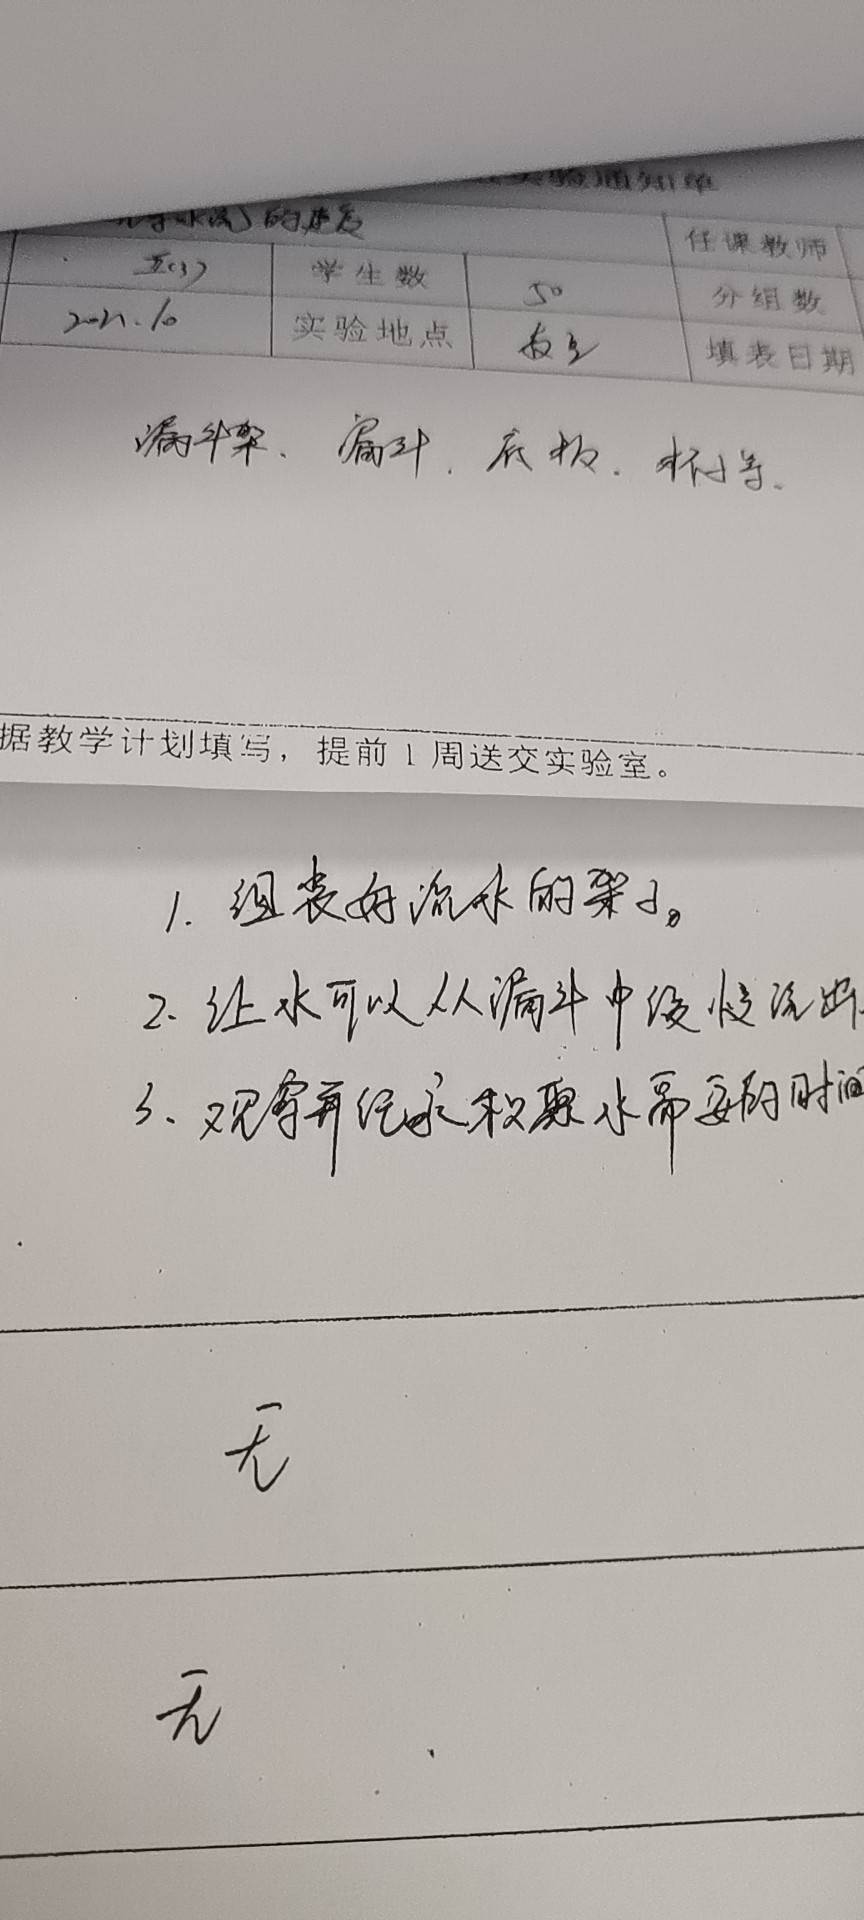 实验通知单
水流的速度
任课教师
五(3) 学生数 50 分组数
2021.10 实验地点 教室 填表日期
漏斗架、漏斗、底板、杯子等。
据教学计划填写，提前1周送交实验室。
1. 组装好流水的架子。
2. 让水可以从漏斗中缓慢流出
3. 观察并记录积聚水需要的时间
无
无